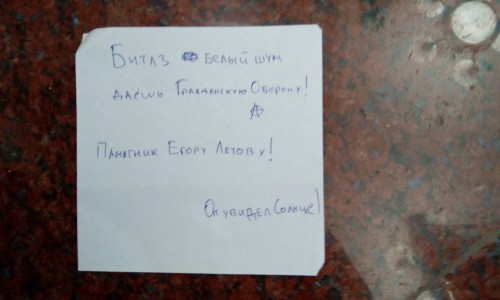 Битлз белый шум
Даёшь Гражданскую Оборону!
А
Памятник Егору Летову!
Он увидел Солнце!